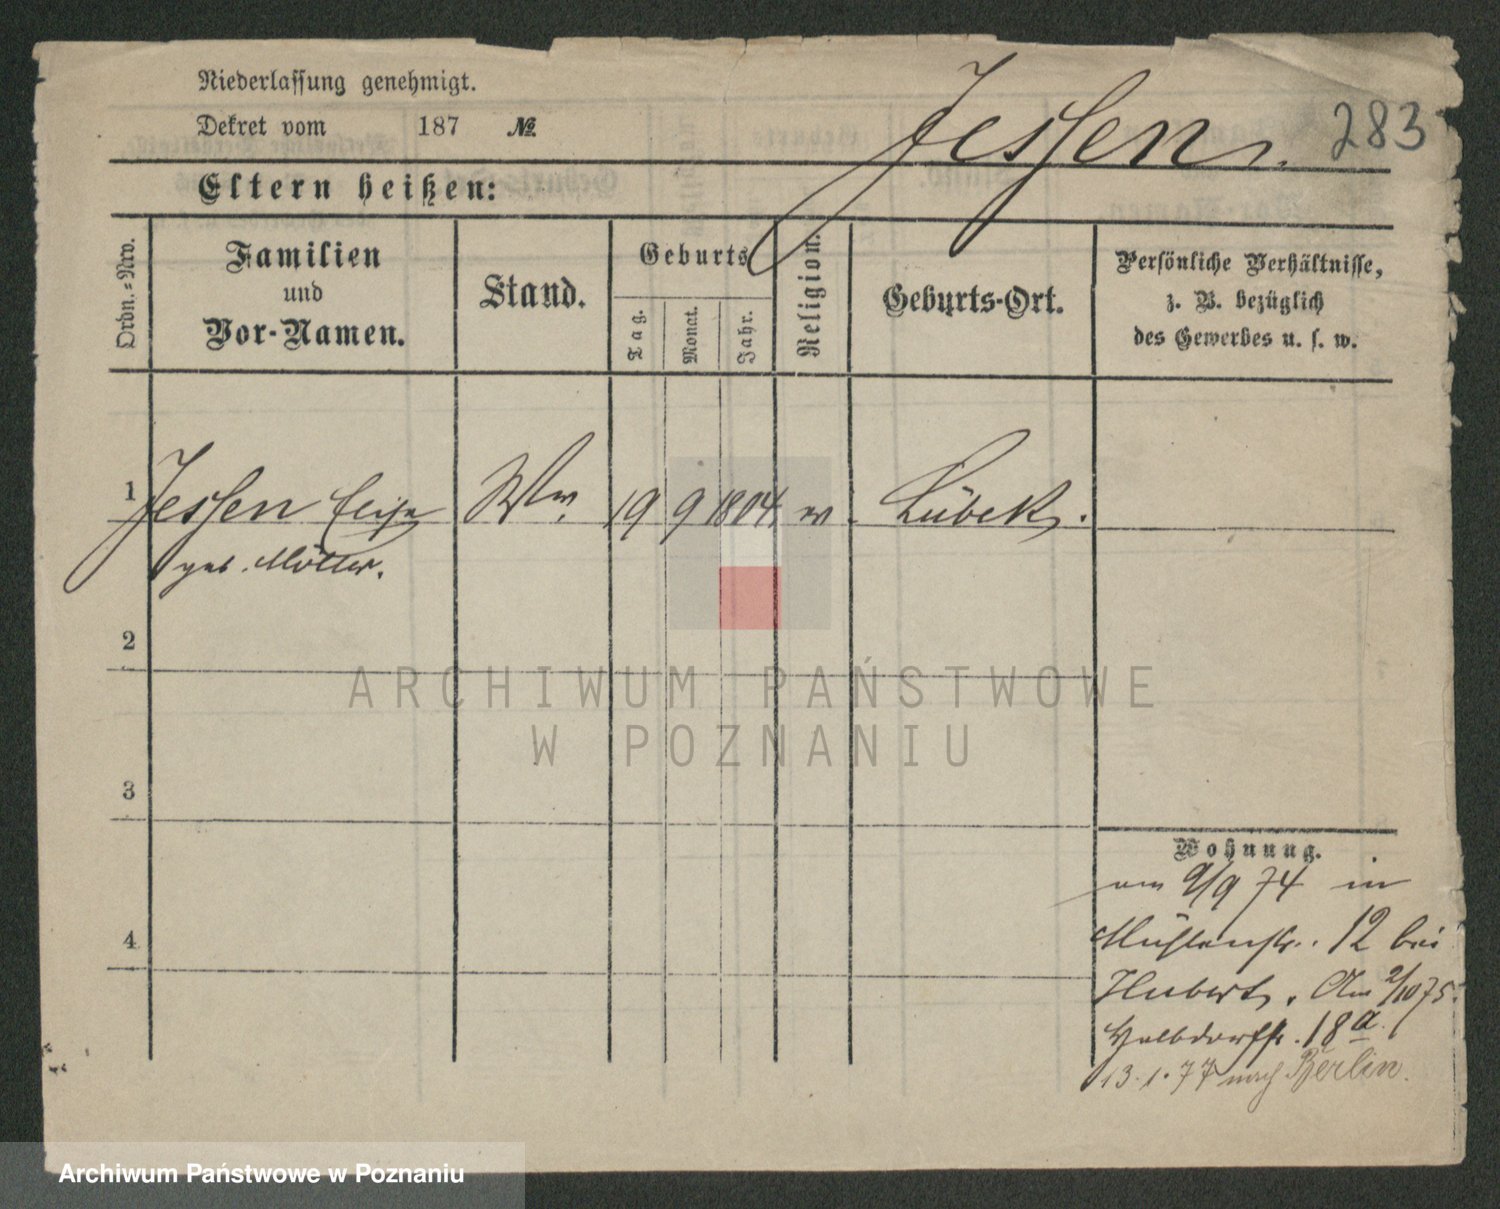 Niederlassung genehmigt.
Dekret vom 187 №
Jessen. 283
Eltern heißen:
Ordn.=Nro.
Familien
und
Vor-Namen.
Stand.
Geburts
Tag.
Monat.
Jahr.
Religion.
Geburts-Ort.
Persönliche Verhältnisse,
z. B. bezüglich
des Gewerbes u. s. w.
1 Jessen Elise Ww. 19 9 1804. ev. Lübek.
geb. Möller.
2
3
4
Wohnung.
am 9/9 74 in
Mühlenstr. 12 bei
Hubert. Am 2/10 75.
Halbdorfstr. 18 a.
13.1.77 nach Berlin.
ARCHIWUM PAŃSTWOWE
W POZNANIU
Archiwum Państwowe w Poznaniu